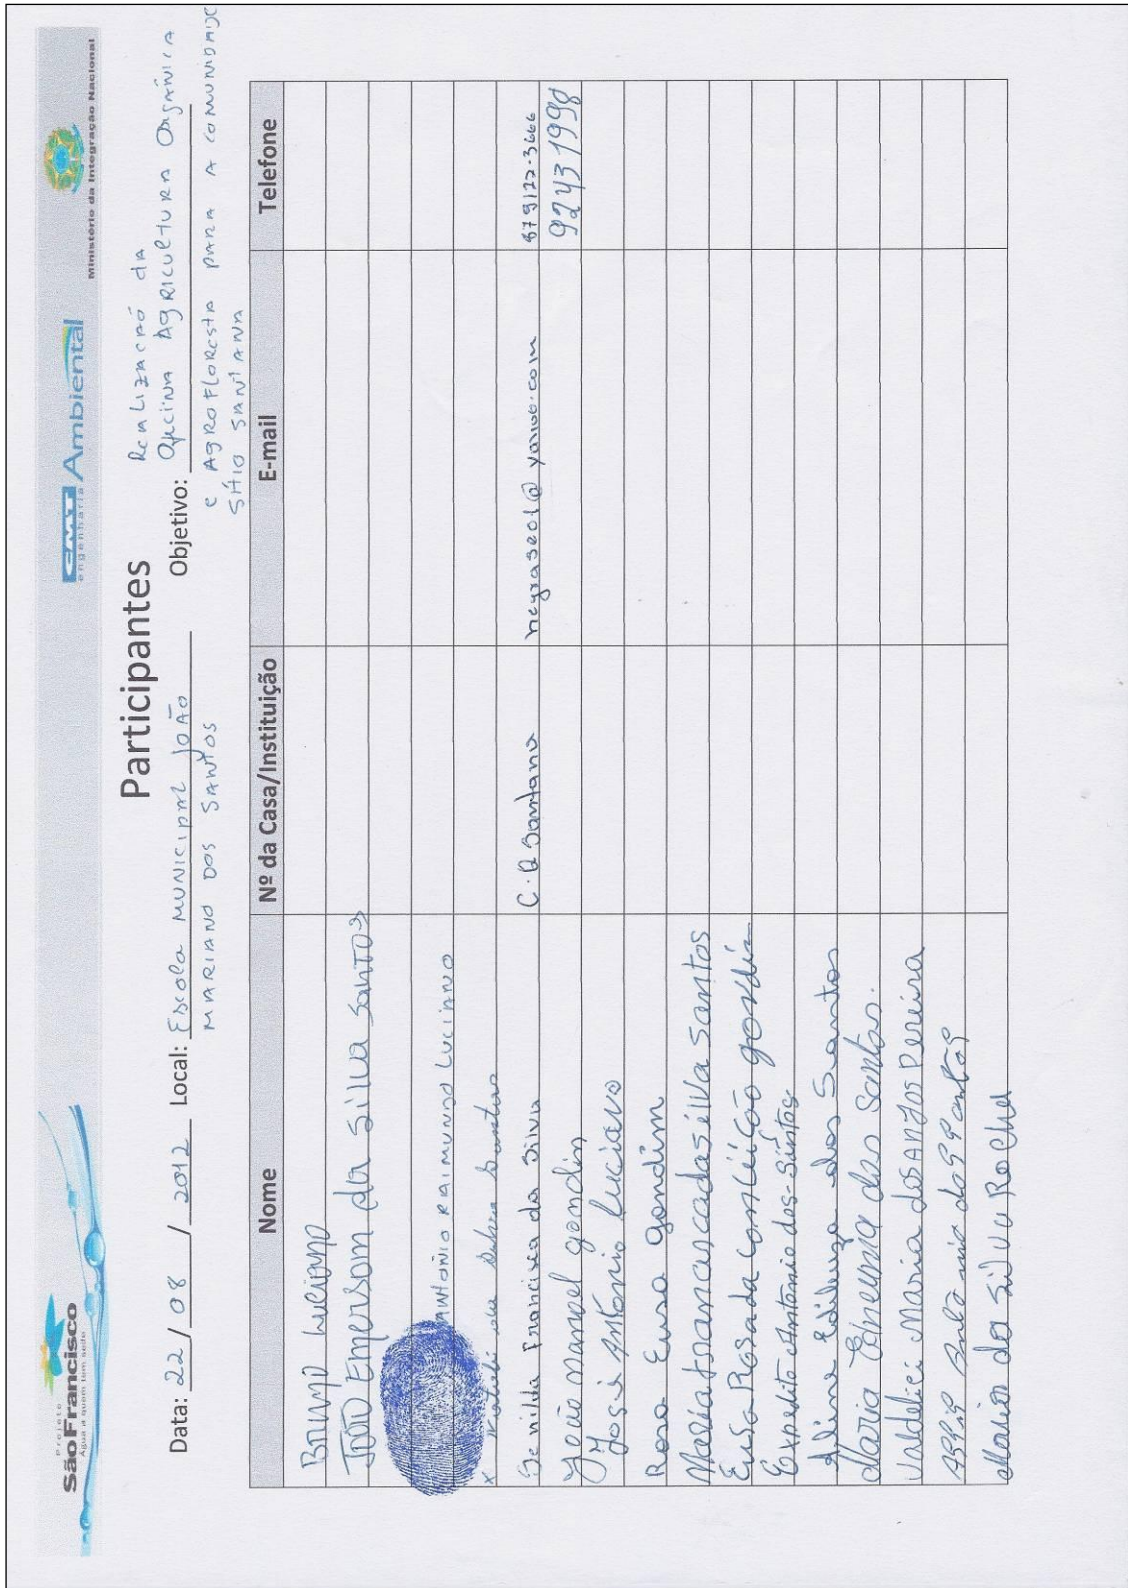 Projeto
São Francisco
Água a quem tem sede
CMT Ambiental
engenharia
Ministério da Integração Nacional
Participantes
Data: 22 / 08 / 2012 Local: Escola Municipal João
Mariano dos Santos
Objetivo: Realização da
Oficina Agricultura Orgânica
e Agrofloresta para a comunidade
Sítio Santana
Nome Nº da Casa/Instituição E-mail Telefone
Bruno Luciano
João Emerson da Silva Santos
Antonio Raimundo Luciano
x da Santos
Francisca da Silva C.Q Santana 879122-3666
João manoel gondin 92431998
José Antônio Luciano
Rosa Eusa gondim
Maria Francisca da Silva Santos
Eusa Rosa da Conceição gondin
Expedito Antonio dos Santos
Aline dos Santos
Maria dos Santos.
Valdeci Maria dos Anjos Pereira
Antonio dos Santos
Maria da Silva Rocha